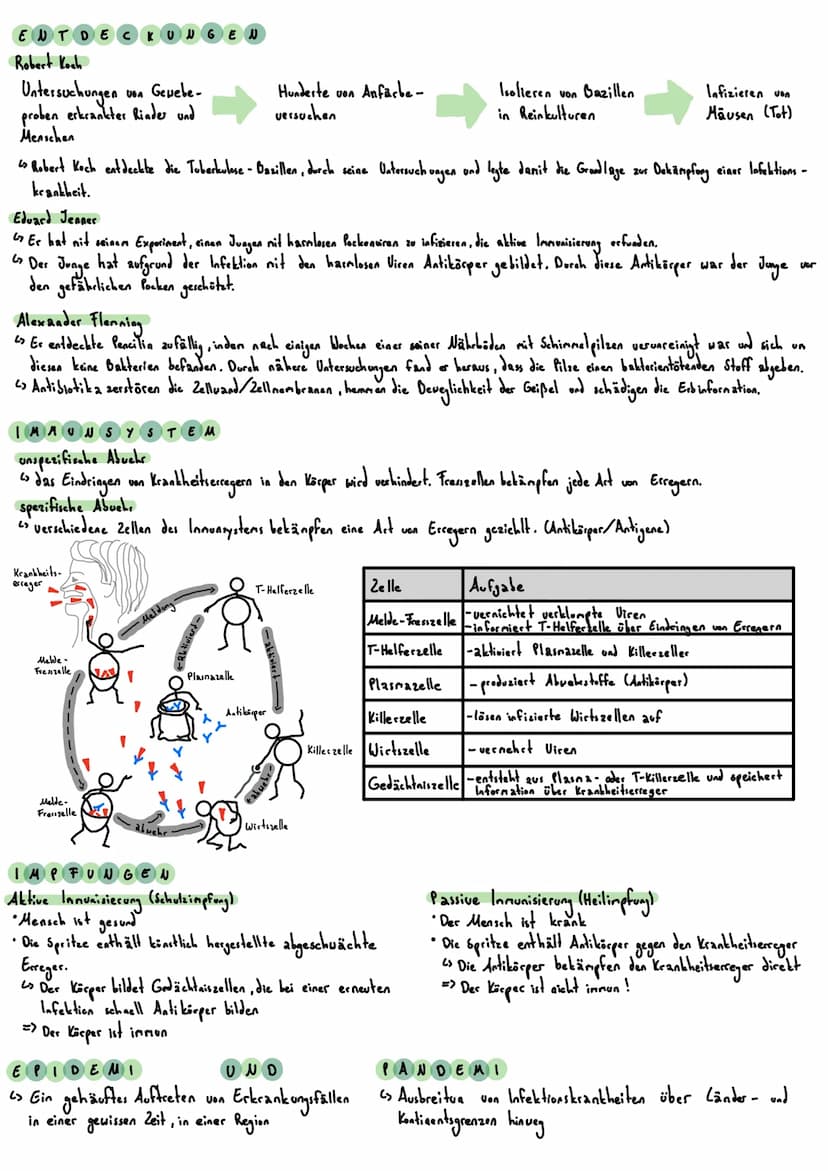 ENTDECKUNGEN
Robert Koch
Untersuchungen von Gewebe-
proben erkrankter Rinder und
Menschen
Hunderte von Anfärbe-
versuchen
Isolieren von Bazillen
in Reinkulturen
Infizieren von
Mäusen (Tot)
↳ Robert Koch entdeckte die Tuberkulose-Bazillen, durch seine Untersuchungen und legte damit die Grundlage zur Bekämpfung einer Infektions-
krankheit.
Eduard Jenner
↳ Er hat mit seinem Experiment, einen Jungen mit harmlosen Pockenviren zu infizieren, die aktive Immunisierung erfunden.
↳ Der Junge hat aufgrund der Infektion mit den harmlosen Viren Antikörper gebildet. Durch diese Antikörper war der Junge vor
den gefährlichen Pocken geschützt.
Alexander Flemming
↳ Er entdeckte Pencilin zufällig, indem nach einigen Wochen einer seiner Nährböden mit Schimmelpilzen verunreinigt war und sich um
diesen keine Bakterien befanden. Durch nähere Untersuchungen fand er heraus, dass die Pilze einen bakterientötenden Stoff abgeben.
↳ Antibiotika zerstören die Zellwand/Zellmembranen, hemmen die Beweglichkeit der Geißel und schädigen die Erbinformation.
IMMUNSYSTEM
unspezifische Abwehr
↳ das Eindringen von Krankheitserregern in den Körper wird verhindert. Fresszellen bekämpfen jede Art von Erregern.
spezifische Abwehr
↳ verschiedene Zellen des Immunsystems bekämpfen eine Art von Erregern gezielt. (Antikörper/Antigene)
Krankheits-
erreger
Meldung
T-Helferzelle
aktiviert
aktiviert
Melde-
Fresszelle
Plasmazelle
Antikörper
Killerzelle
abwehr
Melde-
Fresszelle
abwehr
Wirtszelle
Zelle Aufgabe
Melde-Fresszelle -vernichtet verklumpte Viren
-informiert T-Helferzelle über Eindringen von Erregern
T-Helferzelle -aktiviert Plasmazelle und Killerzeller
Plasmazelle -produziert Abwehstoffe (Antikörper)
Killerzelle -lösen infizierte Wirtszellen auf
Wirtszelle -vermehrt Viren
Gedächtniszelle -entsteht aus Plasma- oder T-Killerzelle und speichert
Information über Krankheitserreger
IMPFUNGEN
Aktive Immunisierung (Schutzimpfung)
• Mensch ist gesund
• Die Spritze enthält künstlich hergestellte abgeschwächte
Erreger.
↳ Der Körper bildet Gedächtniszellen, die bei einer erneuten
Infektion schnell Antikörper bilden
=> Der Körper ist immun
Passive Immunisierung (Heilimpfung)
• Der Mensch ist krank
• Die Spritze enthält Antikörper gegen den Krankheitserreger
↳ Die Antikörper bekämpfen den Krankheitserreger direkt
=> Der Körper ist nicht immun!
EPIDEMI UND PANDEMI
↳ Ein gehäuftes Auftreten von Erkrankungsfällen
in einer gewissen Zeit, in einer Region
↳ Ausbreitun von Infektionskrankheiten über Länder- und
Kontinentsgrenzen hinweg